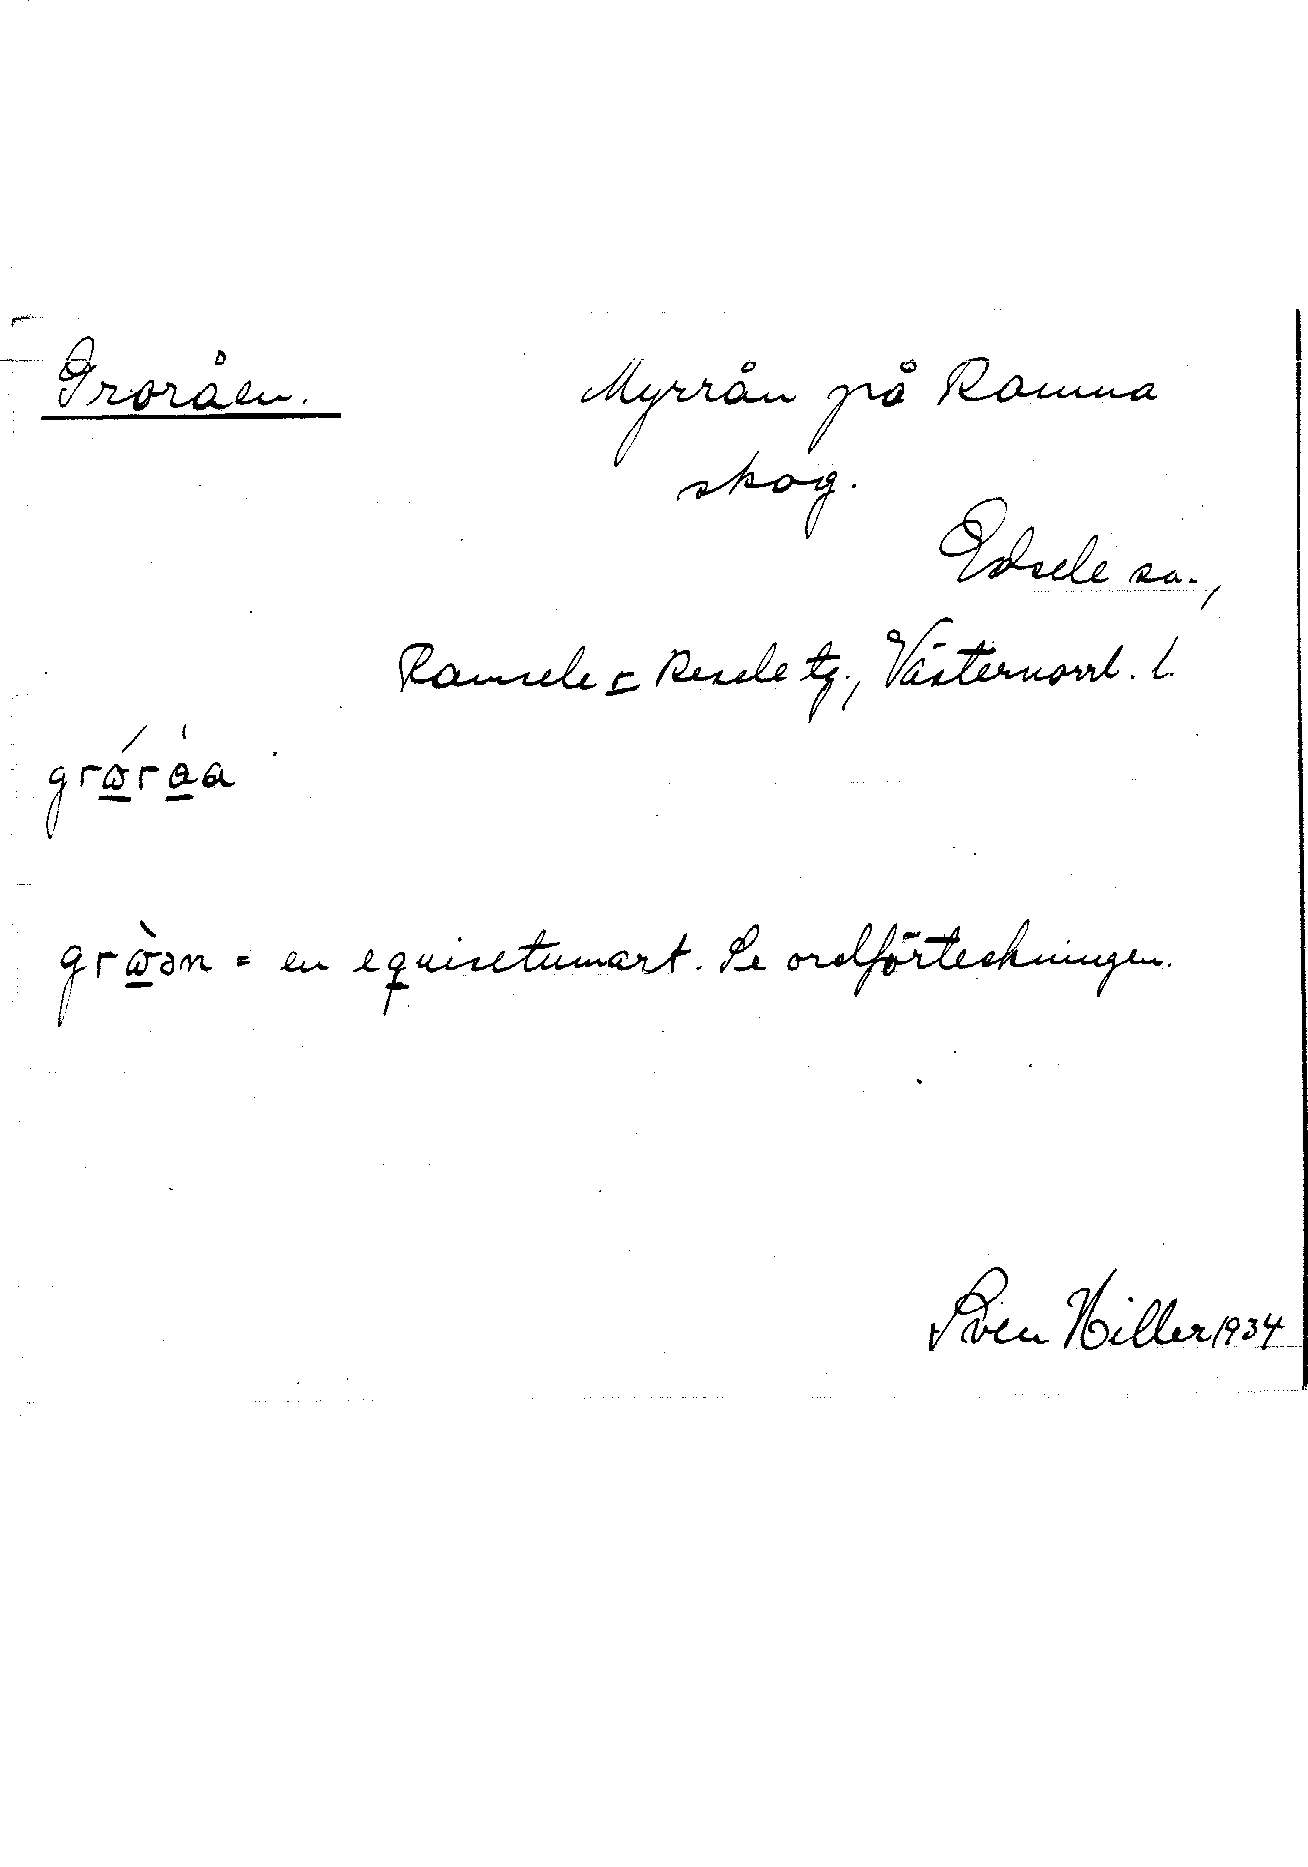 Groråen. Myrrån på Ramna
skog.
Edsele sn.,
Ramsele o Resele tg., Västernorrl. l.
grώ̲rа̲̊a
grὼ̲ən = en equisetumart. Se ordförteckningen.
Sven Hiller 1934